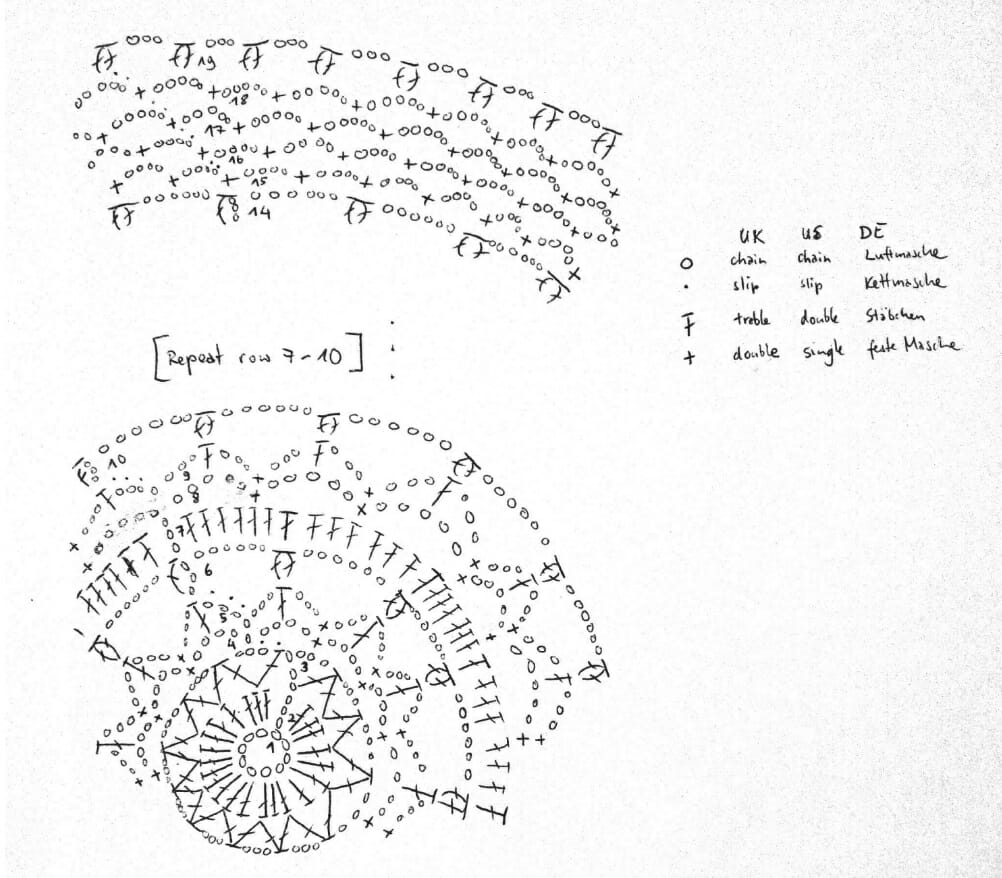 19
18
17
16
15
14
UK US DE
chain chain Luftmasche
slip slip Kettmasche
treble double Stäbchen
double single feste Masche
[Repeat row 7-10]
10
9
8
7
6
5
4
3
2
1